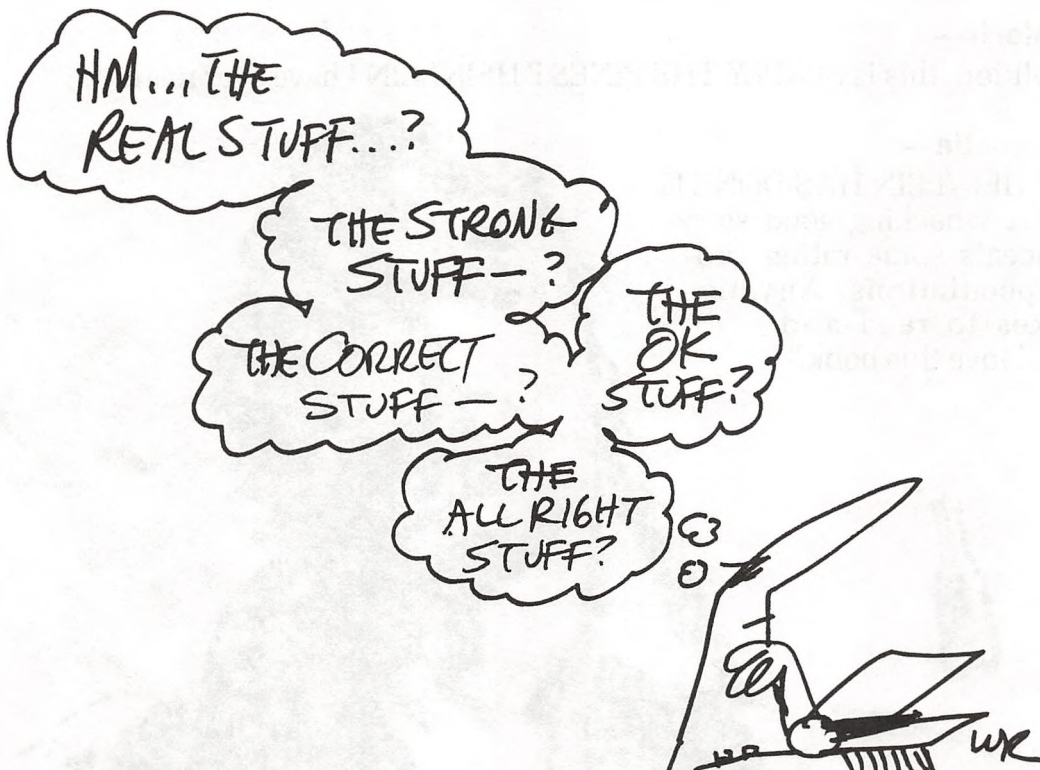 HM... THE
REAL STUFF...?
THE STRONG
STUFF — ?
THE
OK
STUFF?
THE CORRECT
STUFF — ?
THE
ALL RIGHT
STUFF?
WR